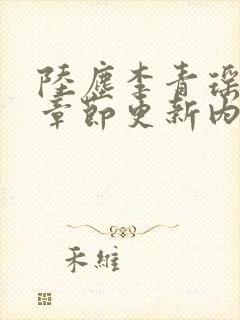 陸塵李青瑤
章節更新內
禾維